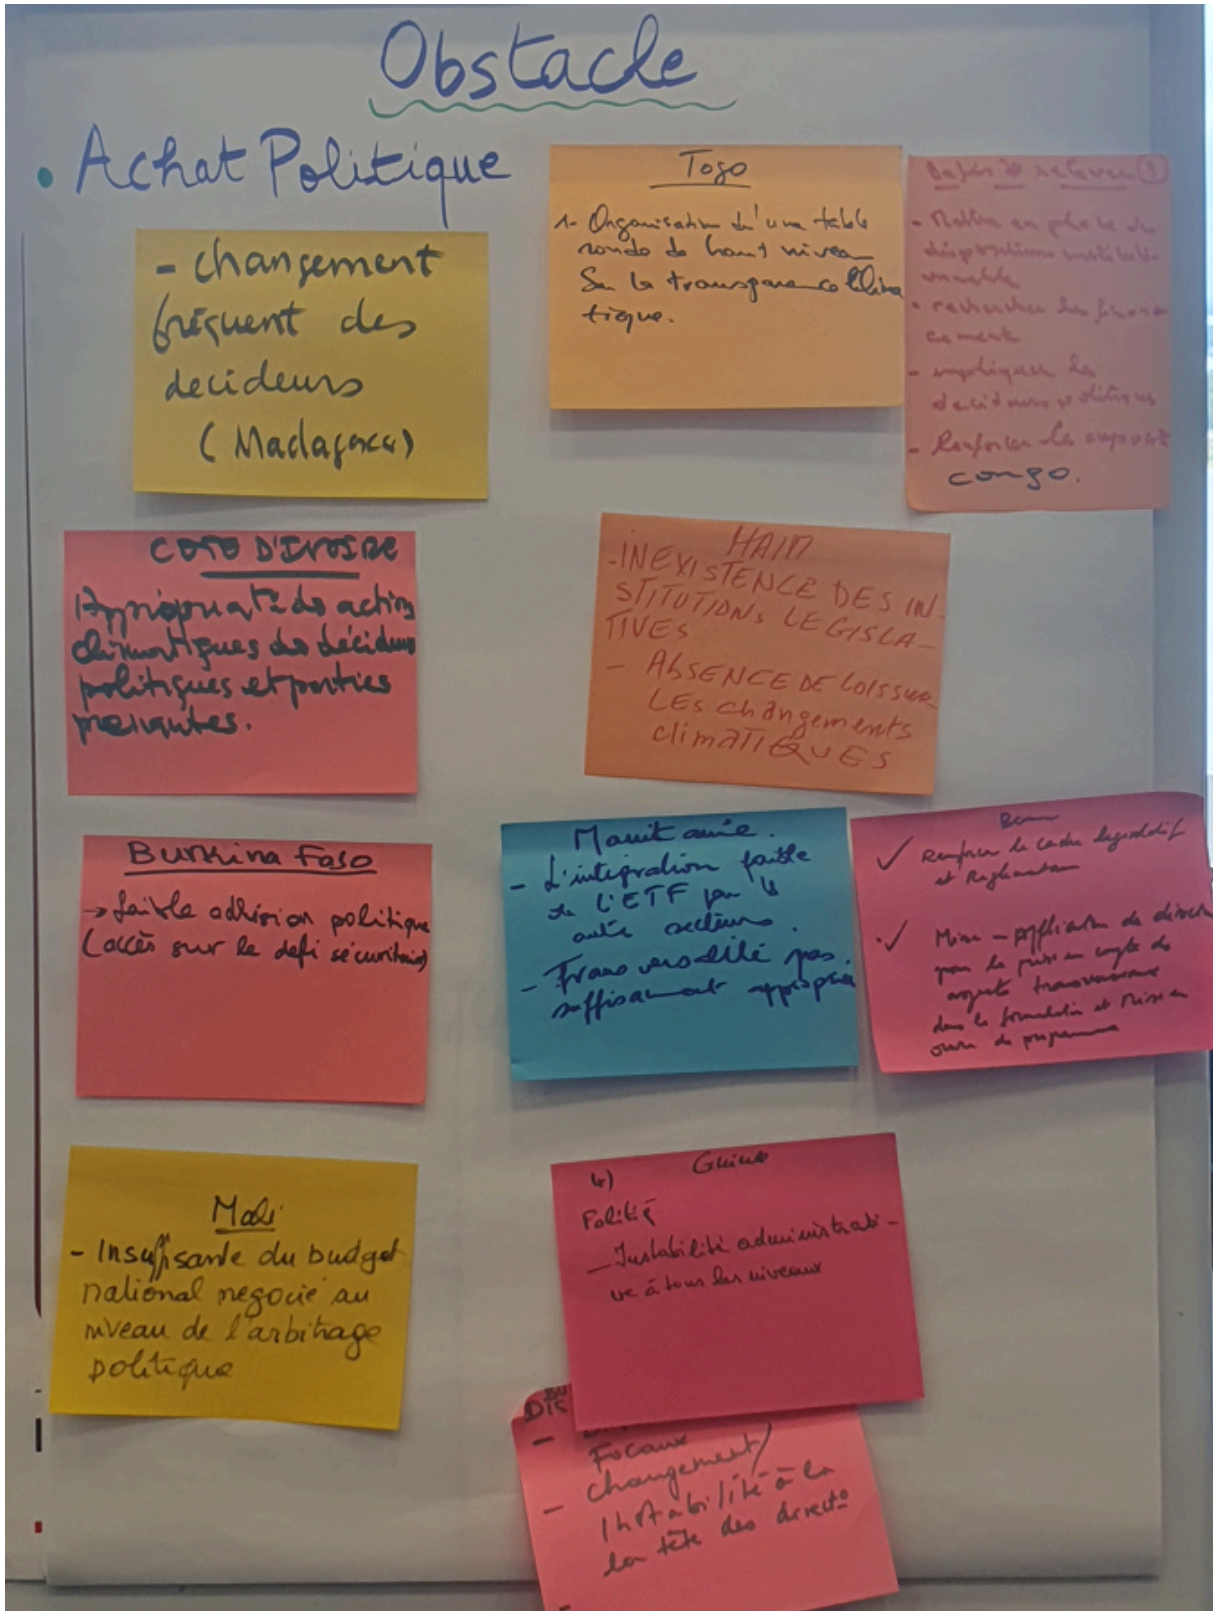 Obstacle
• Achat Politique
- changement
fréquent des
decideurs
(Madagascar)
Togo
1- Organisation d'une table
ronde de haut niveau
Sur la transparence Clima
tique.
- Mettre en place des
dispositions
- rechercher les finan
cement
- impliquer les
decideurs politiques
- Renforcer les
congo.
COTE D'IVOIRE
des actions
climatiques des décideurs
politiques et parties
prenantes.
HAITI
- INEXISTENCE DES IN-
STITUTIONS LEGISLA-
TIVES
- AbSENCE DE LOIS SUR
LES changements
climaTIQUES
Burkina Faso
→ faible adhésion politique
(accès sur le defi sécuritaire)
Mauritanie.
- L'intégration faible
de l'ETF par les
autres secteurs.
- Transversalité pas
suffisament approprié
✓ Renforcer le cadre législatif
et
✓ Mise en
pour la prise en compte des
dans la formulation et mise en
programme
Mali
- Insuffisante du budget
national negocié au
niveau de l'arbitrage
politique
Guinée
4)
- Instabilité administrati-
ve à tous les niveaux
Focaux
- changement/
instabilité à la
la tête des